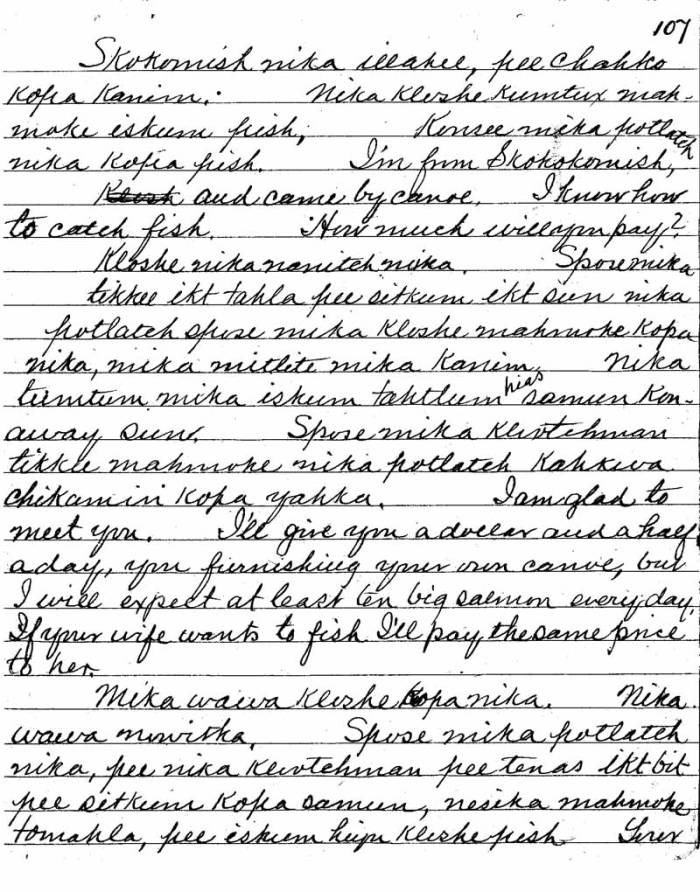 107
Skokomish nika illahee, pee Chahko
Kopa Kanim. Nika Kloshe Kumtux mah-
moke iskum pish, Konsee mika potlatch
nika Kopa pish. I'm from Skokokomish,
Klosh and came by canoe. I know how
to catch fish. How much will you pay?
Kloshe nika nanitch mika. Spose mika
tikkee ikt tahla pee sitkum ikt sun nika
potlatch spose mika Kloshe mahmoke Kopa
nika, mika mitlite mika Kanim. Nika
tumtum mika iskum tahtlum hias samun Kon-
away sun. Spose mika Klootchman
tikke mahmoke nika potlatch Kahkwa
chikamin Kopa yahka. I am glad to
meet you. I'll give you a dollar and a half
a day, you furnishing your own canoe, but
I will expect at least ten big salmon every day
If your wife wants to fish I'll pay the same price
to her.
Mika wawa Kloshe Kopa nika. Nika
wawa nowitka. Spose mika potlatch
nika, pee nika Klootchman pee tenas ikt bit
pee sitkum Kopa samun, nesika mahmoke
tomahla, pee iskum hiyu Kloshe pish